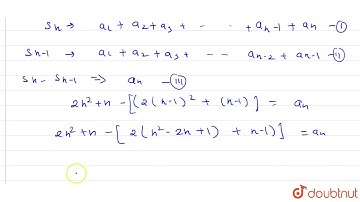 Sn → a1 + a2 + a3 + - - - + an-1 + an - ①
Sn-1 → a1 + a2 + a3 + - - an-2 + an-1 - ⑪
Sn - Sn-1 ⇒ an - ⑪⑪
2n² + n - [(2(n-1)² + (n-1)] = an
2n² + n - [2(n² - 2n + 1) + n-1)] = an
doubtnut